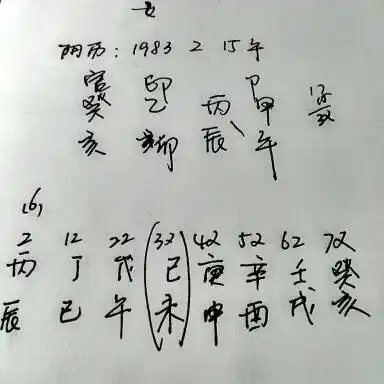 女
阴历: 1983 2 15 午
官 印 卩
癸 乙 丙 甲
亥 卯 辰 午
(6)
2 12 22 (32) 42 52 62 72
丙 丁 戊 己 庚 辛 壬 癸
辰 巳 午 未 申 酉 戌 亥